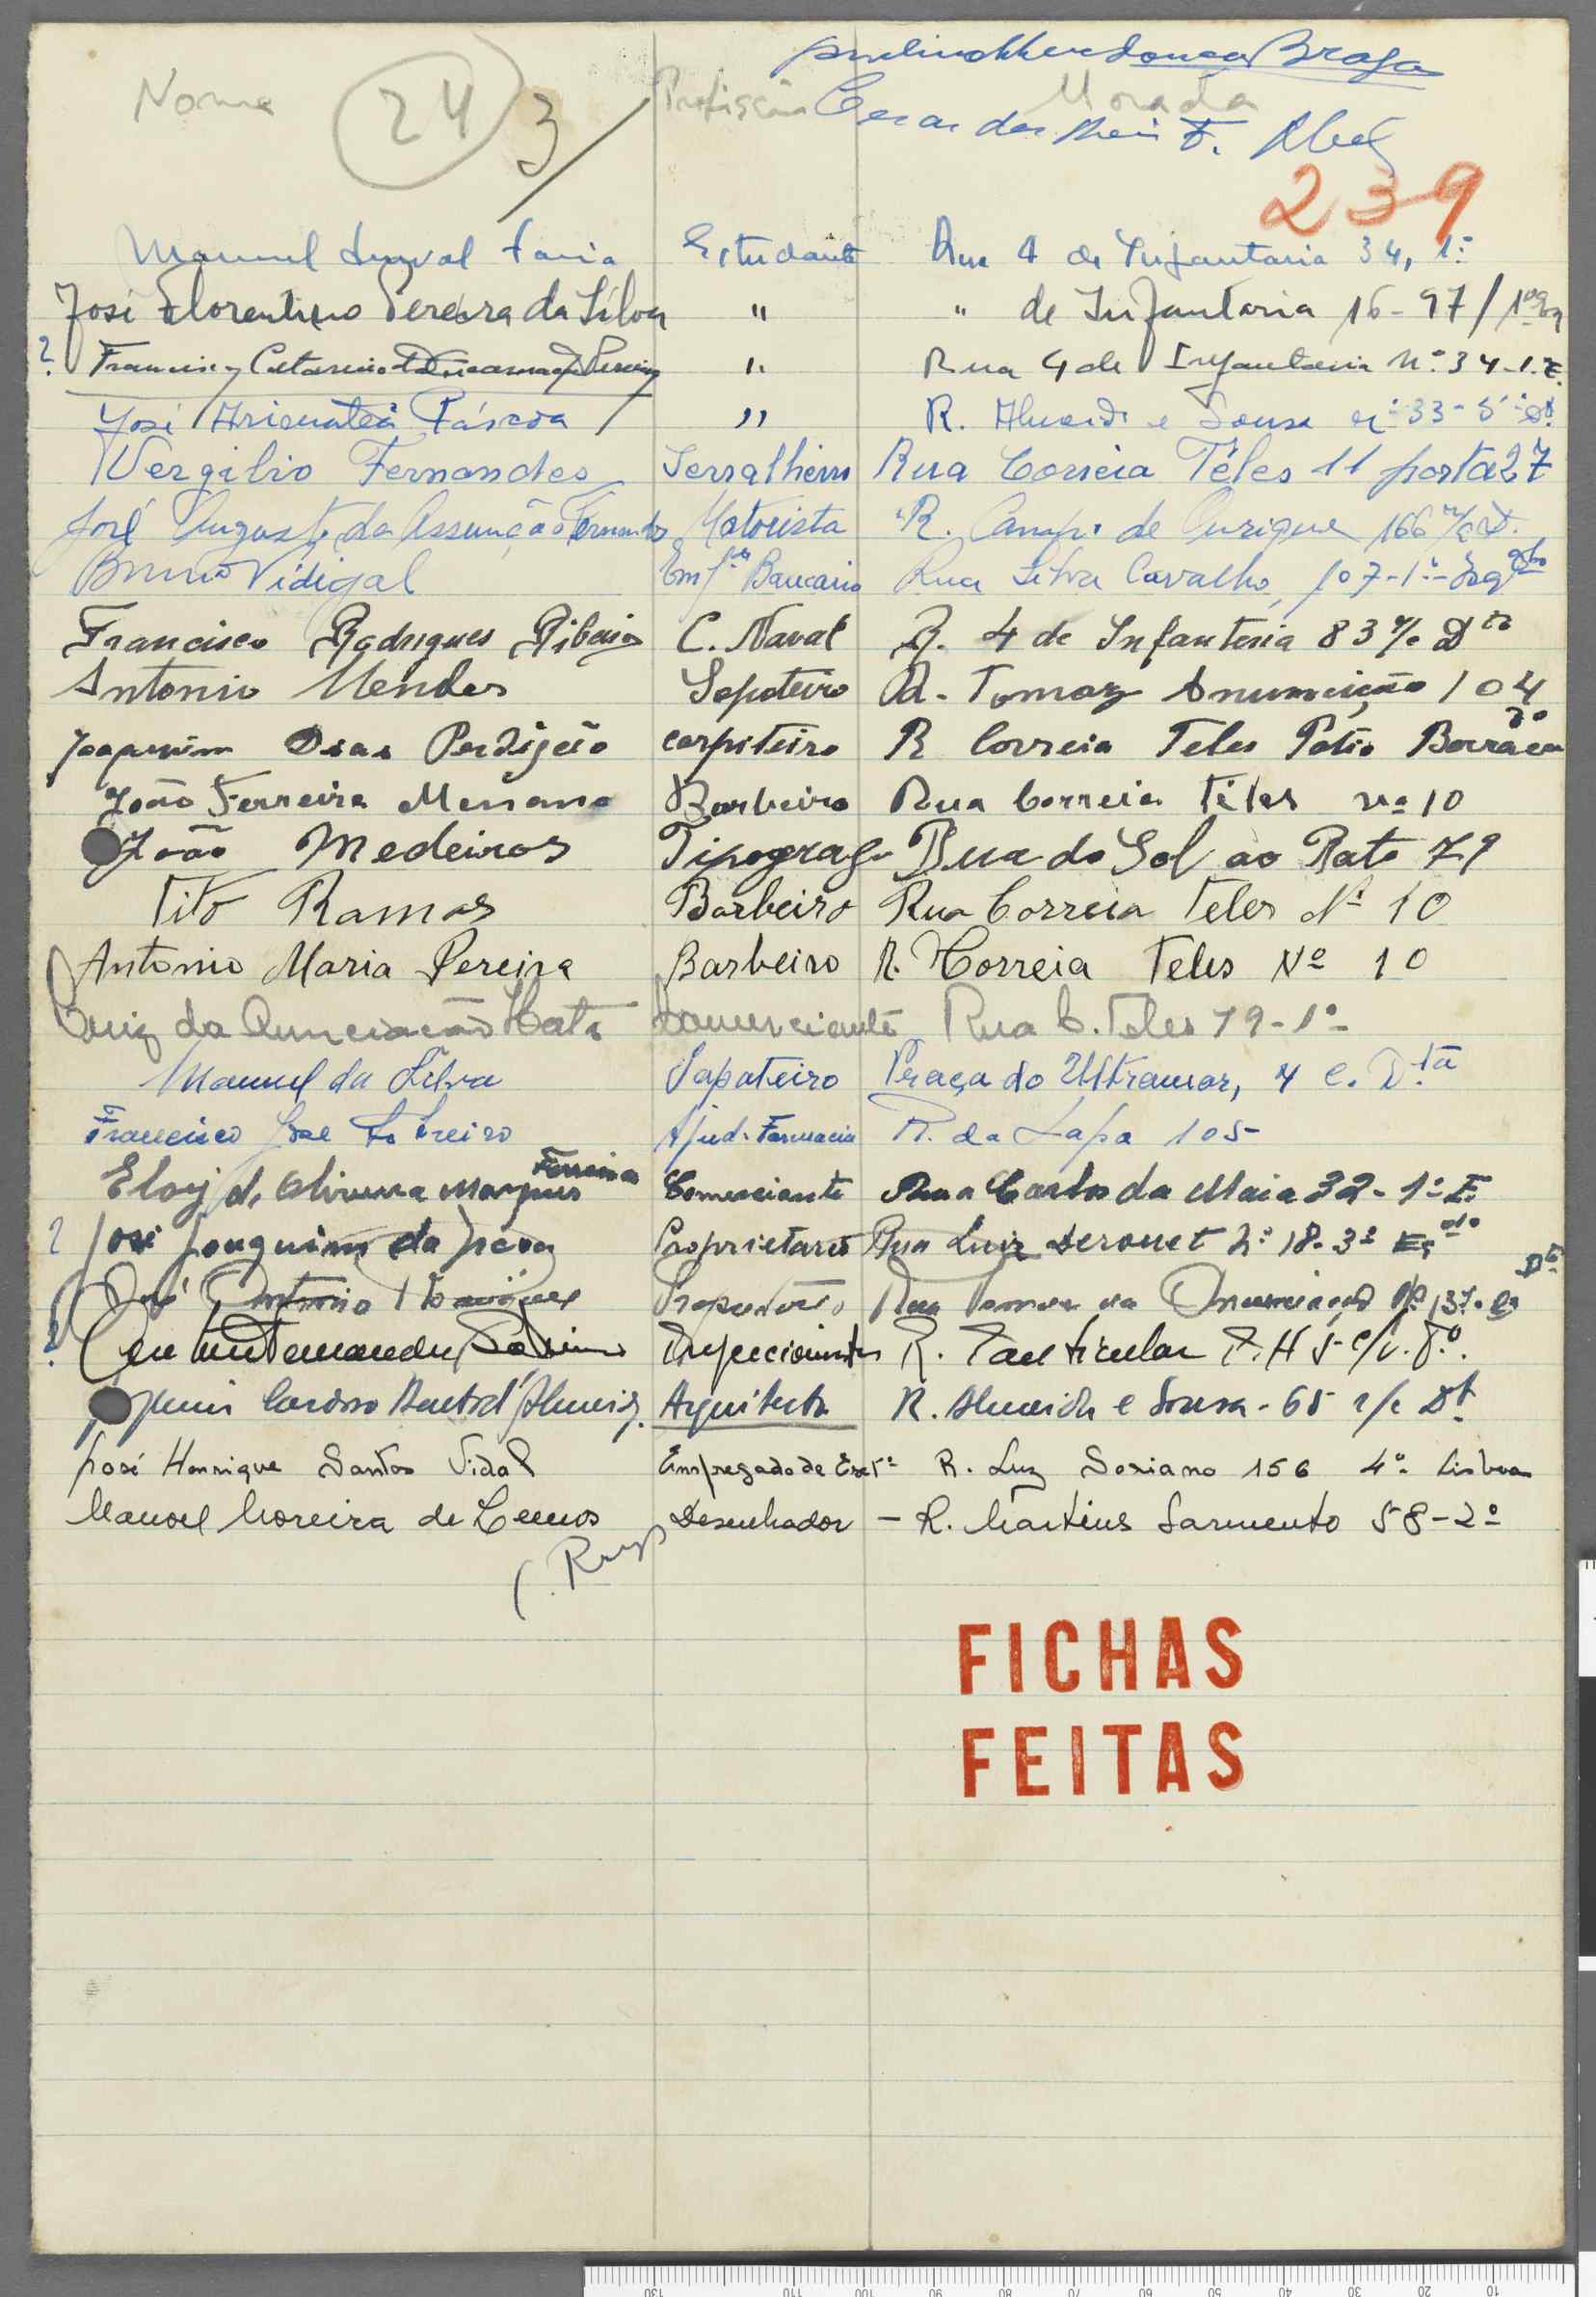 Braga
Nome 24 3/ Profissão Morada
239
Manuel Faria Estudante Rua 4 de Infantaria 34, 1º
José Florentino Pereira da Silva " " de Infantaria 16-97/1º
? Pereira " Rua 4 de Infantaria nº 34-1.E.
José Arimateia Páscoa " R. Almeida e Sousa nº 33-5º
Vergilio Fernandes Serralheiro Rua Correia Téles 11 porta 27
José Augusto da Assunção Fernandes Motorista R. Campo de Ourique 166
Bruno Vidigal Bancario Rua Silva Carvalho, 107-1º-
Francisco Rodrigues Ribeiro C. Naval R. 4 de Infanteria 83 Dto
Antonio Mendes Sapateiro R. Tomaz Anunciação 104
Joaquim Dias Perdigão carpiteiro R Correia Teles Pátio
João Ferreira Menano Barbeiro Rua Correia Téles nº 10
João Medeiros Tipografo Rua do Sol ao Rato 79
Tito Ramos Barbeiro Rua Correia Teles Nº 10
Antonio Maria Pereira Barbeiro R. Correia Teles Nº 10
Luiz da Anunciação Comerciante Rua C. Teles 19-1º
Manuel da Silva Sapateiro Praça do Ultramar, 4 C. Dta
Francisco José Ajud. Farmacia R. da Lapa 105
Eloy d. Oliveira Marques Ferreira Comerciante Rua Carlos da Maia 32-1º E.
? José Joaquim da Proprietario Rua Luiz Derouet 18-3º
José Antonio Proprietario Rua
? R. Particular
Cardoso Arquitecto R. Almeida e Sousa-65 r/c Dt.
José Henrique Santos Vidal Empregado de R. Luz Soriano 156 4º. Lisboa
Manoel Moreira de Lemos Desenhador - R. Martins Sarmento 58-2º
FICHAS
FEITAS